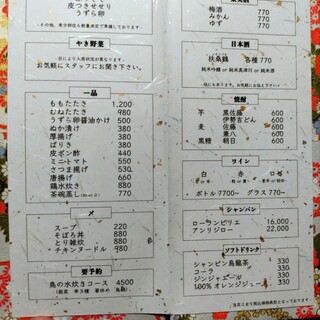 皮つきせせり
うずら卵
やき野菜
お気軽にスタッフにお聞き下さい。
一品
ももたたき 1,200
むねたたき 980
うずら卵醤油かけ 500
ぬか漬け 380
厚揚げ 380
ばりき 380
皮ポン酢 440
ミニトマト 550
さつま揚げ 530
唐揚げ 660
鶏水炊き 880
茶碗蒸し
〆
スープ 220
そぼろ丼 880
とり雑炊 880
チキンヌードル 980
要予約
鳥の水炊きコース 4500
梅酒 770
みかん
ゆず 770
日本酒
扶桑鶴 各種 770
焼酎
芋 黒佐藤 600
伊勢吉どん 600
麦 佐藤 600
兼八 600
黒糖 朝日 600
ワイン
白 赤 ロゼ
ボトル 7700~ グラス 770~
シャンパン
ローランペリエ 16,000
アンリジロー 22,000
ソフトドリンク
シャンピン烏龍茶 330
コーラ 330
ジンジャエール 330
100% オレンジジュース 330